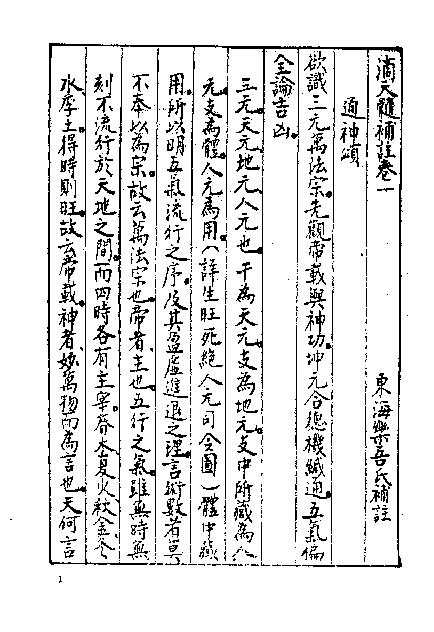 滴天髓補註卷一
東海樂吾氏補註
通神頌
欲識三元萬法宗。先觀帝載與神功。坤元合德機緘通。五氣偏
全論吉凶。
三元。天元地元人元也。干為天元。支為地元。支中所藏為人
元。支為體。人元為用。(詳生旺死絕人元司令圖)體中藏
用。所以明五氣流行之序。及其盈虛進退之理。言術數者莫
不奉以為宗。故云萬法宗也。帝者、主也。五行之氣。雖無時無
刻不流行於天地之間。而四時各有主宰。春木夏火秋金冬
水季土。得時則旺。故云帝載。神者、妙萬物而為言也。天何言
1